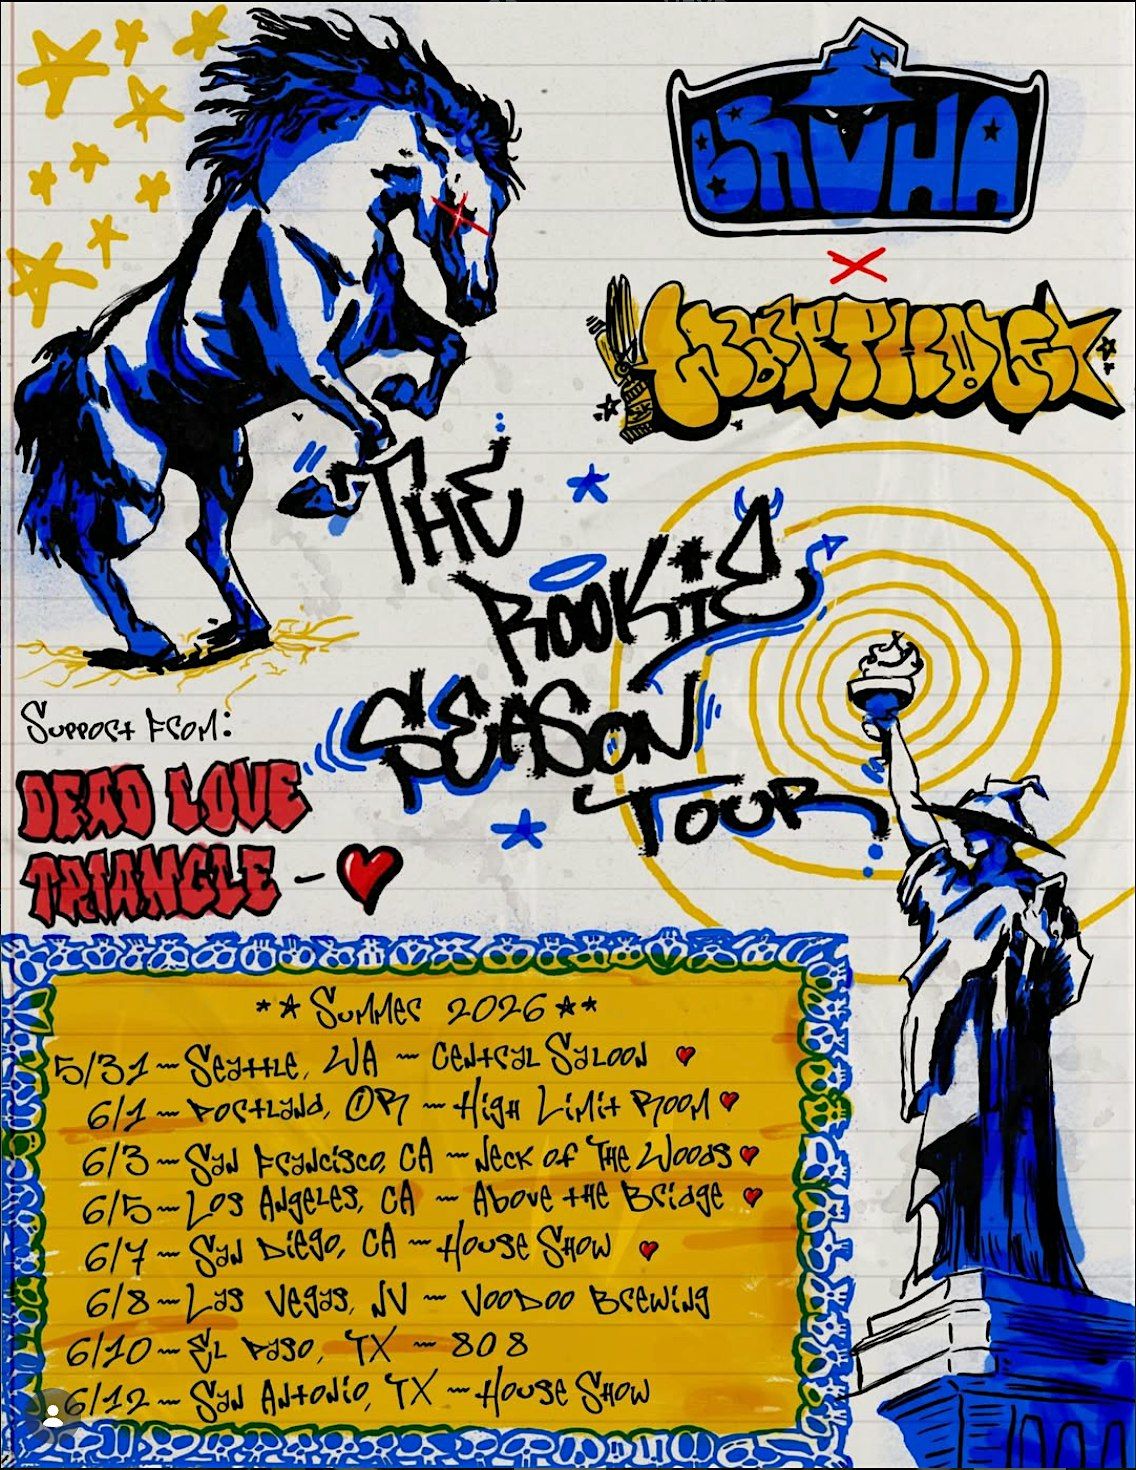 BRUHA
X
WORMHOLE
THE
ROOKIE
SEASON
TOUR
Support From:
DEAD LOVE
TRIANGLE - ♥
**Summer 2026**
5/31 ~ Seattle, WA ~ Central Saloon ♥
6/1 ~ Portland, OR ~ High Limit Room ♥
6/3 ~ San Francisco, CA ~ Neck of The Woods ♥
6/5 ~ Los Angeles, CA ~ Above the Bridge ♥
6/7 ~ San Diego, CA ~ House Show ♥
6/8 ~ Las Vegas, NV ~ VooDoo Brewing
6/10 ~ El Paso, TX ~ 808
6/12 ~ San Antonio, TX ~ House Show